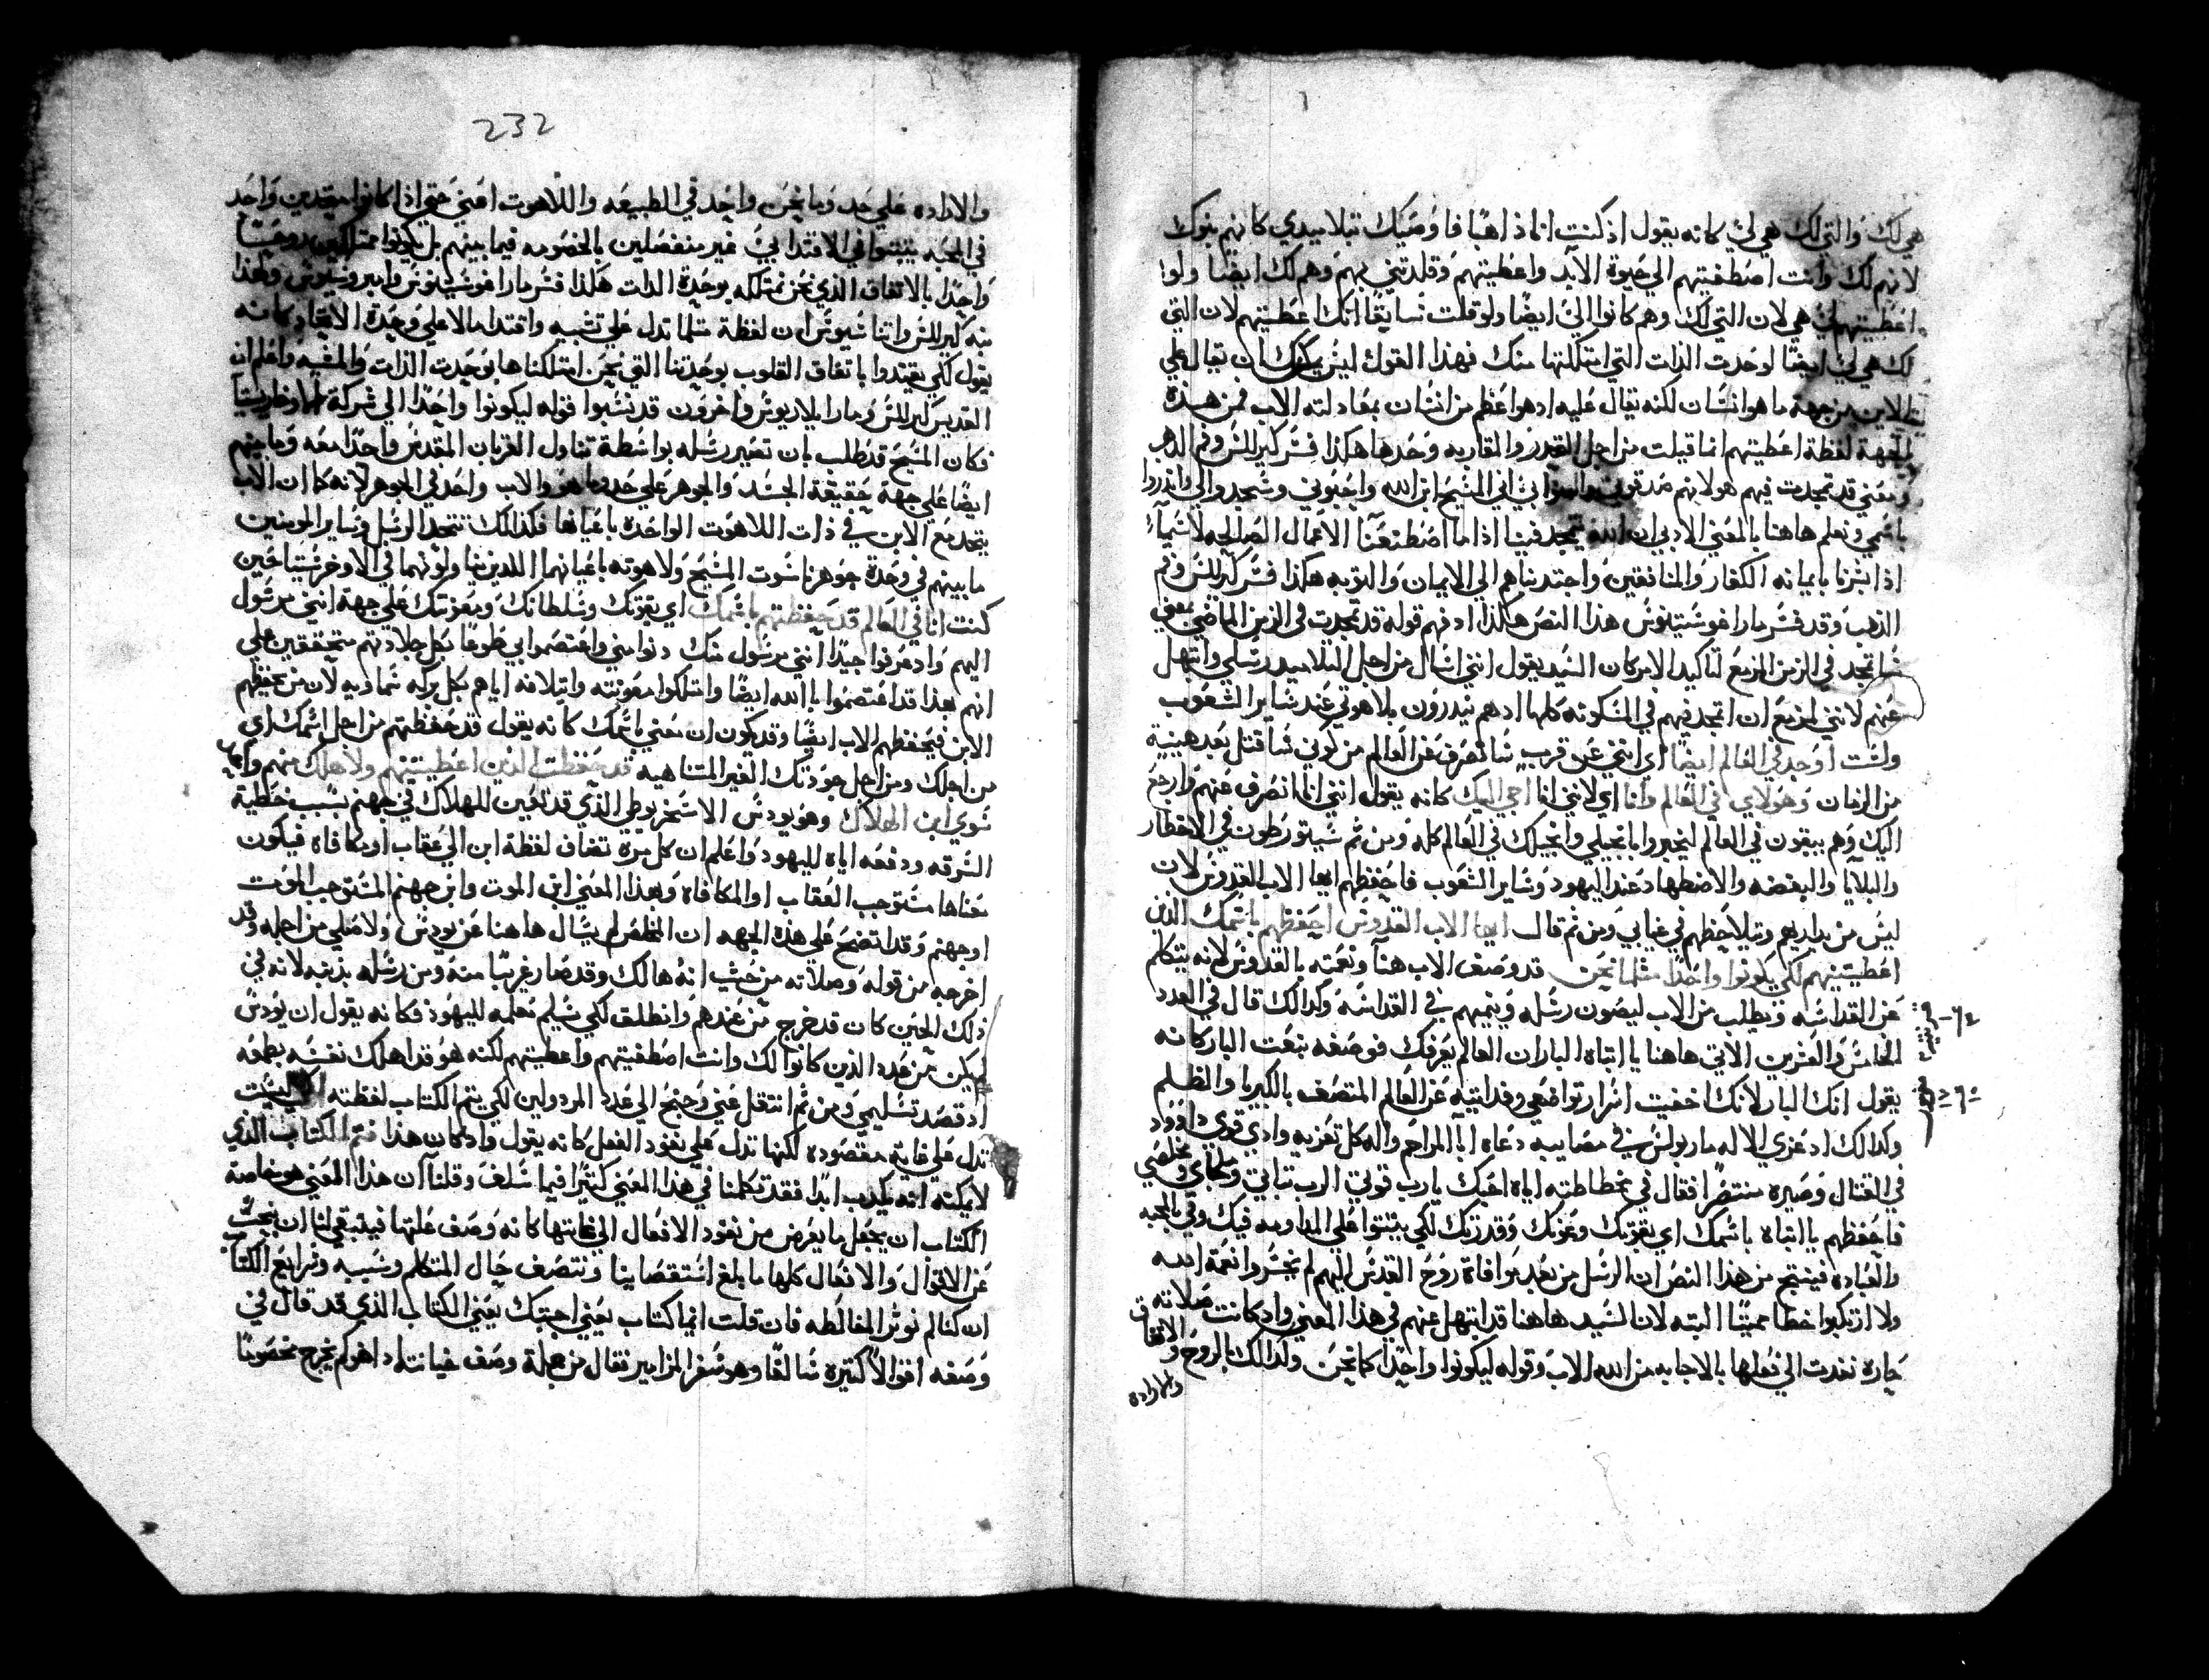 هي لك والتي لك هي لي كانه يقول اذ كنت انا ذاهبا فاوصيك بتلاميدي كانهم بنوك
لانهم لك وانت اصطفيتهم الي حيوة الابد واعطيتهم وقلدتني بهم وهم لك ايضا ولوا
اعطيتهم لي هي لان التي لك وهم كانوا لي ايضا ولو قلت سابقا انك اعطيتهم لان التي
لك هي لي ايضا لوحدت الذات التي امتلكتها منك فهذا القول ليس يمكن ان يقال علي
الابن من جهة ما هو انسان لكنه يقال عليه اد هو اعظم من انسان بمعادلته الاب فمن هذه
الجهة لفظة اعطيتهم انما قيلت من اجل القدر والمقاربه وحدها هكذا فسر كيرللس وفم الدهب
ومعني قد تمجدت فيهم هو لانهم صدقوني وامنوا بي اني المسيح ابن الله واحبوني وسمجدوا لي واندروا
باسمي ونعلم هاهنا بالمعني الادبي ان الله يتمجد فينا اذا ما اصطنعنا الاعمال الصالحه لا سيماء
اذا بشرنا بايمانه الكفار والمنافقين واجتدبناهم الي الايمان والتوبه هكذا فسر كيرللس وفم
الذهب وقد فسر مار اغوسيتنوس هذا النص هكذا اد فهم قوله قد تمجدت في الزمن الماضي بمعني
ساتمجد في الزمن المزمع لتاكيد الامر كان السيد يقول انني اسال من اجل التلاميد رسلي وابتهل
عنهم لانني مزمع ان اتمجد فيهم في المسكونه كلها اد هم يندرون بلاهوتي عند ساير الشعوب
ولست اوجد في العالم ايضا اي انني عن قرب سانصرف عن العالم من كوني ساقتل بعد هنيهة
من الزمان وهولاي في العالم وانا اي لانني انا اجي اليك كانه يقول انني انا انصرف عنهم وارجع
اليك وهم يبقون في العالم ليخبروا بانجيلي وانجيلك في العالم كله ومن ثم سيتورطون في الاخطار
والبلايا والبغضه والاضطهاد عند اليهود وساير الشعوب فاحفظهم ايها الاب القدوس لان
ليس من يداريهم ويلاحظهم في غيابي ومن ثم قال ايها الاب القدوس احفظهم باسمك الذين
اعطيتنيهم لكي يكونوا واحدا مثلما نحن قد وصف الاب هنا ونعته بالقدوس لانه يتكلم
عن القداسه ويطلب من الاب ليصون رسله وينميهم في القداسه وكدالك قال في العدد
الخامس والعشرين الاتي هاهنا يا ابتاه البار ان العالم لم يعرفك فوصفه بنعت البار كانه
يقول انك البار لانك اخفيت اسرار تواضعي وفدايتيه عن العالم المتصف بالكبريا والظلم
وكدالك اد عزي الاله مار بولس في مصايبه دعاه ابا المراحم واله كل تعزيه واد قوي داوود
في القتال وصيره منتصرا فقال في مخاطبته اياه احبك يارب قوتي الرب تباتي وملجاي ومخلصي
فاحفظهم يا ابتاه باسمك اي بقوتك وعونك وقدرتك لكي يثبتوا علي المداومه فيك وفي المحبه
والعباده فينتج من هذا النص ان الرسل من بعد موافاة روح القدس اليهم لم يخسروا نعمة الله
ولا ارتكبوا خطا مميتا البته لان السيد هاهنا قد ابتهل عنهم في هذا المعني واد كانت صلاته
حاره نفدت الي فعلها بالاجابه من الله الاب وقوله ليكونوا واحدا كما نحن وكدالك بالروح والاتفاق
والاراده
232
والاراده علي حد وما نحن واحد في الطبيعه واللاهوت اعني حتي اذا كانوا متحدين واحد
في المحبه يثبتوا في الاقتدا بي غير منفصلين بالخصومه فيما بينهم بل يكونوا ممتلكين روحا
واحدا بالاتفاق الذي نحن نمتلكه بوحدة الدات هكذا فسر مار اغوسيتنوس وامبروسيوس وهكذا
نبه كيرللس واتناسيوس ان لفظة مثلما تدل علي تشبيه واقتدا بالاعلي وحدة الاتحاد كانه
يقول لكي يقتدوا باتفاق القلوب بوحدتنا التي نحن امتلكناها بوحدت الذات والمشيه واعلم ان
القديس كيرللس ومار ايلاريوس واخرون قد نسبوا قوله ليكونوا واحدا الي شركة الافخارستيا
فكان المسيح قد طلب بان تصير رسله بواسطة تناول القربان المقدس واحدا معه وما بينهم
ايضا علي جهة حقيقة الجسد والجوهر علي حد ما هو والاب واحد في الجوهر لانه كما ان الاب
يتحد مع الابن في ذات اللاهوت الواحدة باعيانها فكذالك تتحد الرسل وساير المومنين
ما بينهم في وحدة جوهر ناسوت المسيح ولاهوته باعيانهما اللدين يتناولونهما في الاوخرستيا حين
كنت انا في العالم قد حفظتهم باسمك اي بقوتك وسلطانك ومعزتك علي جهة انني مرسول
اليهم واد عرفوا جيدا انني مرسول منك دنوا مني واعتصموا بي طوعا بكل جلادتهم متحققين علي
انهم بهذا قد اعتصموا بالله ايضا وامتلكوا معونته وايتلافه اياهم بكل بركه سماويه لان من يحفظهم
الابن فيحفظهم الاب ايضا وقد يكون ان معني باسمك كانه يقول قد حفظتهم من اجل اسمك اي
من اجلك ومن اجل جودتك الغير المتناهيه قد حفظت الذين اعطيتنيهم ولا هلك منهم واحد
سوي ابن الهلاك وهو يودس الاسخريوطي الذي قد تعين للهلاك في جهنم بسبب خطية
السرقه ودفعه اياه لليهود واعلم ان كل مرة تضاف لفظة ابن الي عقاب او مكافاه فيكون
معناها مستوجب العقاب او المكافاة وبهذا المعني ابن الموت وابن جهنم المستوجب الموت
او جهنم وقد اتضح علي هذه الجهه ان المخلص لم يسال هاهنا عن يودس ولا صلي من اجله وقد
اخرجه من قوله وصلاته من حيث انه هالك وقد صار غريبا منه ومن رسله بذنبه لانه في
ذلك الحين كان قد خرج من عندهم وانطلق لكي يسلم معلمه لليهود فكانه يقول ان يودس
لم يكن من عدد الذين كانوا لك وانت اصطفيتهم واعطيتهم لكنه هو قد اهلك نفسه بطمعه
اد قصد تسليمي ومن ثم انتقل عني وجنح الي عدد المردولين لكي يتم الكتاب لفظته لكي ليست
تدل علي غاية مقصوده لكنها تدل علي نفود الفعل كانه يقول واد كان هذا فتم الكتاب الذي
لا يمكنه انه يكدب ابدا فقد تكلمنا في هدا المعني كثيرا فيما سلف وقلنا ان هذا المعني هو خاصة
الكتاب ان يجعل ما يعرض من نفود الافعال الي غايتها كانه وصف علتها فيتبقي لنا ان نبحث
عن الاقوال والافعال كلها ما بلغ استقصاينا ونتصف حال المتكلم وسببه ونراجع الكتاب
ان كنا لم نوثر المغالطه فان قلت ايما كتاب يعني اجبتك يعني الكتاب الذي قد قال في
وصفه اقوالا كتيره سالفا وهو سفر المزامير فقال من جملة وصف خيانته